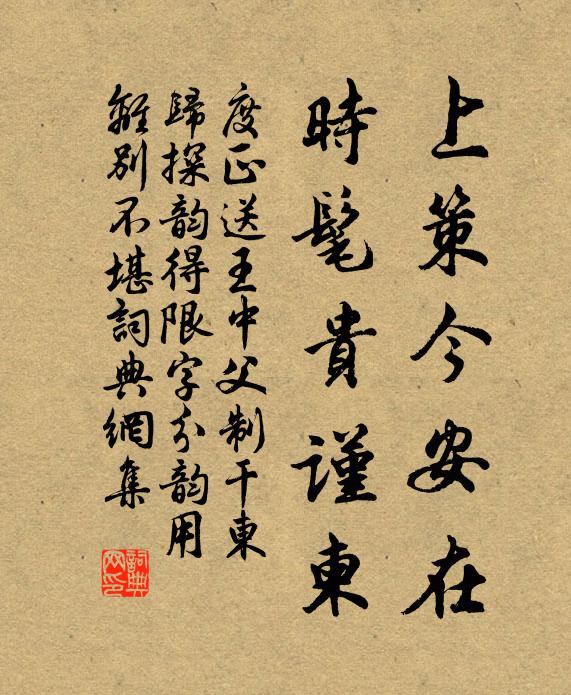 上策今安在
時髦貴謹東
度正送王中父制干東
歸探韵得限字分韵用
離別不堪詞典網集
詞典网印